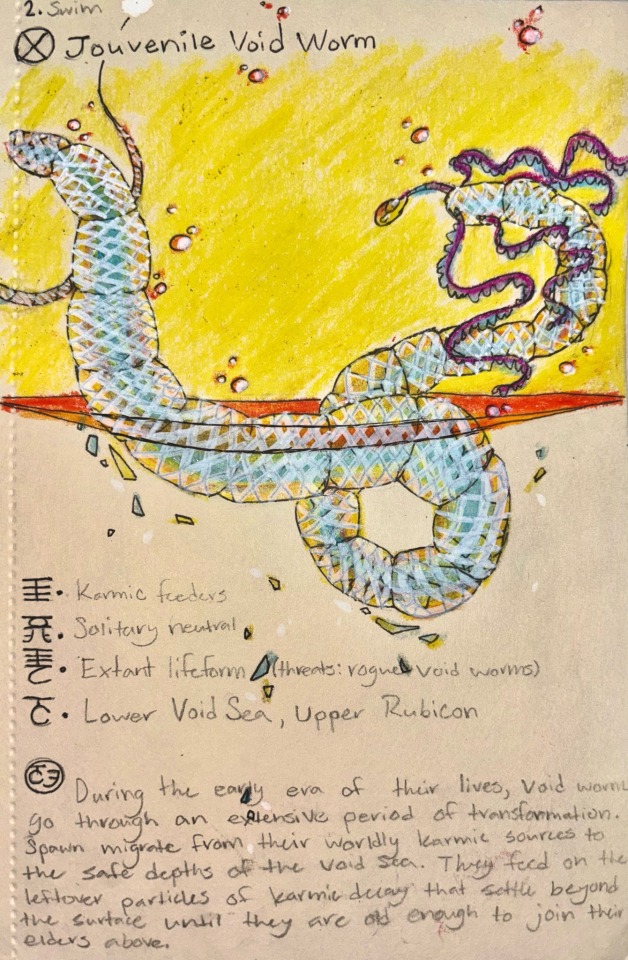 2. Swim
Jouvenile Void Worm
Karmic feeders
Solitary neutral
Extant lifeform (threats: rogue void worms)
Lower Void Sea, Upper Rubicon
During the early era of their lives, Void worms
go through an extensive period of transformation.
Spawn migrate from their worldly karmic sources to
the safe depths of the Void Sea. They feed on the
leftover particles of karmic decay that settle beyond
the surface until they are old enough to join their
elders above.